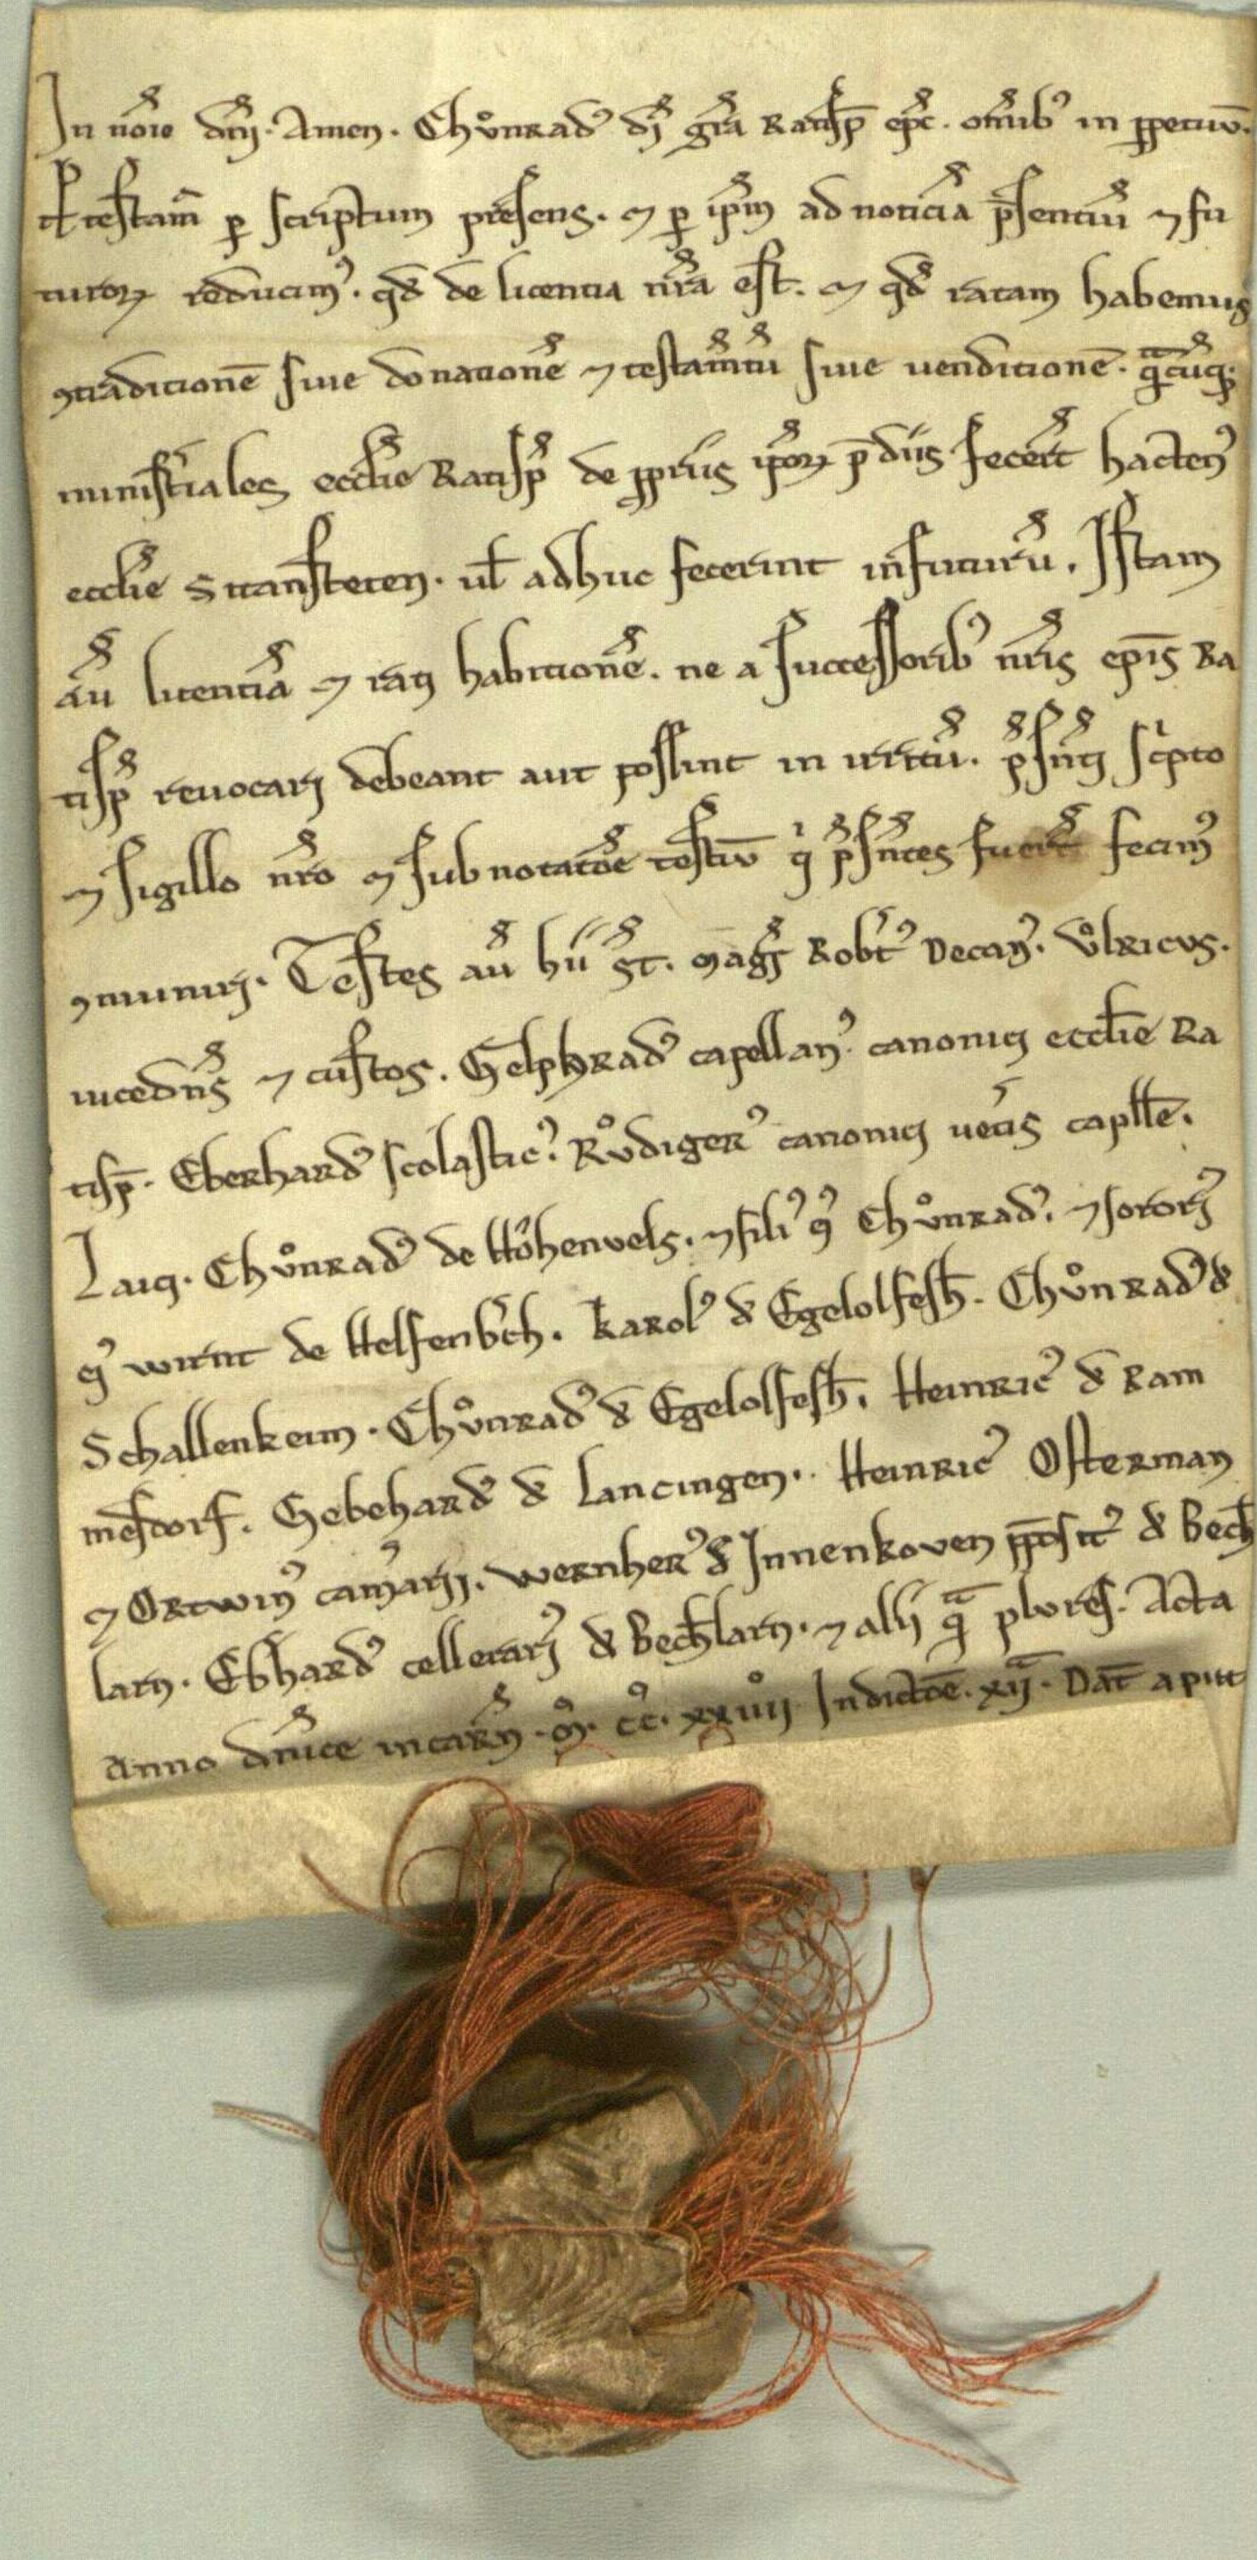 In nōīe dn̄i. Amen. Chůnradꝰ dī gr̄a Ratisp̄ ep̄c. om̄ibꝰ in ꝑpetuū.
Ꝓtestam̄ ꝑ scriptum presens. ⁊ ꝑ ip̄m ad noticiā p̄sentiū ⁊ fu
turoꝝ reducimꝰ. qd̄ de licentia nr̄a est. ⁊ qd̄ ratam habemus
ꝯtraditionē siue donationē ⁊ testam̄tū siue uenditionē. q̄cūqꝫ
ministiales eccl̄ie Ratisp̄ de ꝓpriis ip̄oꝝ p̄diis fecer̄t hactenꝰ
eccl̄ie Stanfteten. ul̄ adhuc fecerint in futurū. Istam
aū licentiā ⁊ rati habitionē. ne a successoribꝰ nr̄is ep̄is Ra
tisp̄ reuocari debeant aut possint in irritū. p̄sn̄ti sc̍pto
⁊ sigillo nr̄o ⁊ subnotatōe testiū q̍ p̄sn̄tes fuer̄t fecimꝰ
ꝯmuniri. Testes aū hui᷒ st̄. Magr̄ Rob̄tꝰ Decanꝰ. Vͦlricus.
uicedn̄s ⁊ custos. Gelphradꝰ capellanꝰ. canonici eccl̄ie Ra
tisp̄. Eberhardꝰ scolasticꝰ. Růdigerꝰ canonici uet̄is capll̄e.
Laici. Chůnradꝰ de Hohenuels. ⁊ filiꝰ eiꝰ Chůnradꝰ. ⁊ sororiꝰ
eiꝰ wirnt de Helfenb̄ch. Karolꝰ d̄ Egelolfesh̄. Chůnradꝰ d̄
Schallenkeim. Chůnradꝰ d̄ Egelolfesh̄. Heinricꝰ d̄ Ram
mesdorf. Gebehardꝰ d̄ Lancingen. Heinricꝰ Osterman
⁊ Ortwinꝰ cam̄arii. Wernherꝰ d̄ Innenkouen p̄positꝰ d̄ Bech̄
larn. Eb̄hardꝰ cellerariꝰ d̄ Bech̄larn. ⁊ alii q̄ plores. Acta
Anno dn̄ice incarn̄. M̊. cͨc̊. xxiiii Indictōe. xii. Dat̄ aput